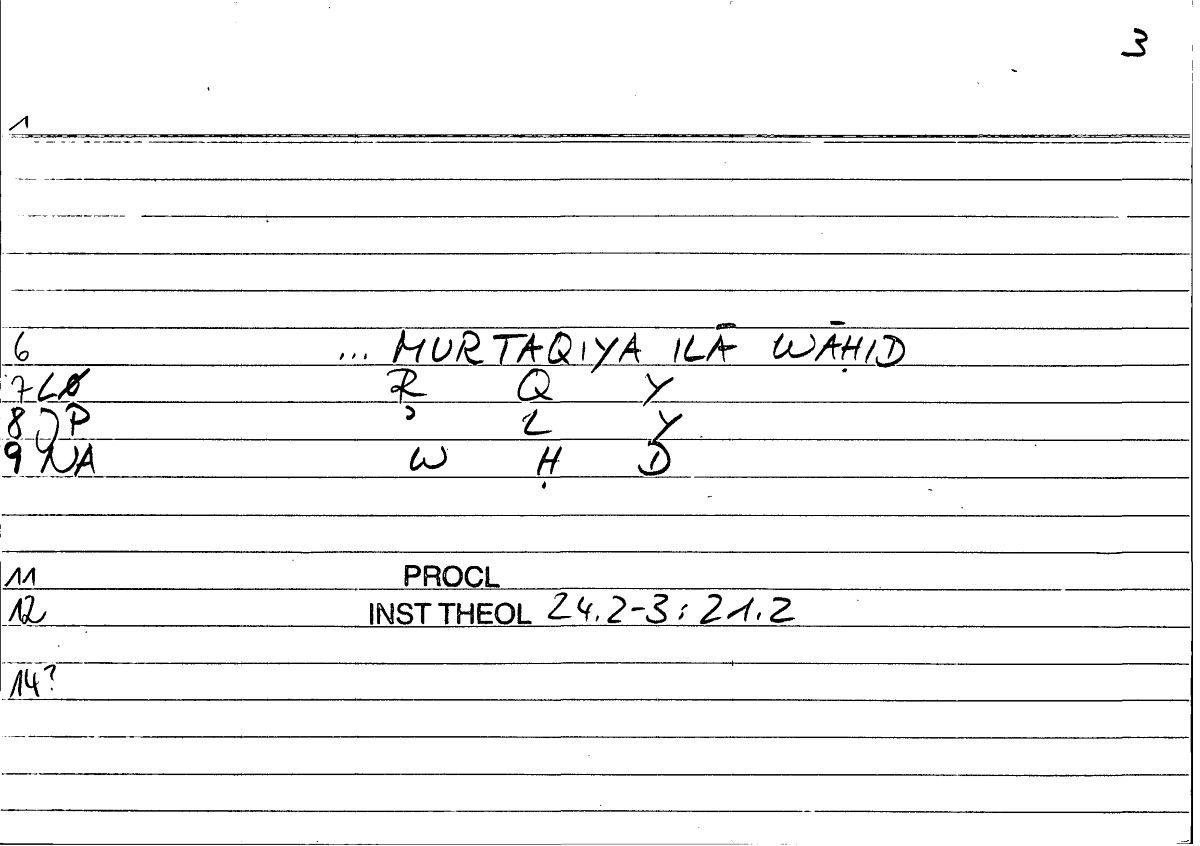 3
1
6 ... MURTAQIYA ILĀ WĀḤID
7 R Q Y
8 P ʾ L Y
9 NA W Ḥ D
11 PROCL
12 INST THEOL 24.2-3 : 21.2
14?